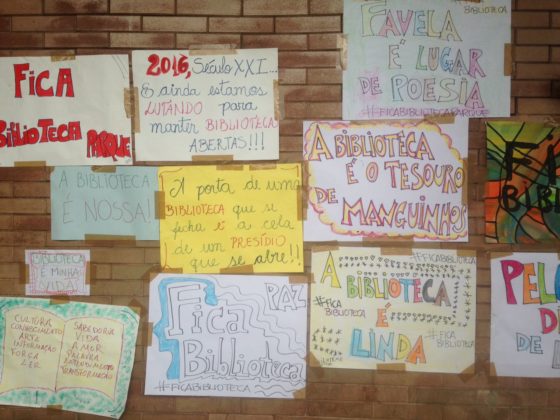 FICA
BIBLIOTECA
PARQUE
2016, Século XXI...
E ainda estamos
LUTANDO para
manter BIBLIOTECA
ABERTAS!!!
BIBLIOTECA
FAVELA
É LUGAR
DE POESIA
#FICABIBLIOTECAPARQUE
A BIBLIOTECA
É NOSSA!
A porta de uma
BIBLIOTECA que se
fecha é a cela
de um PRESÍDIO
que se abre!!
A BIBLIOTECA
É O TESOURO
DE MANGUINHOS
BIBLIOTECA
É MINHA
VIDA!
CULTURA
CONHECIMENTO
ARTE
INFORMAÇÃO
FORÇA
LER
SABEDORIA
VIDA
AMOR
PALAVRA
TRANSFORMAÇÃO
PAZ
Fica
Biblioteca
#FICABIBLIOTECA
#FICABIBLIOTECA
A
BIBLIOTECA
É
LINDA
#FICA
BIBLIOTECA
#FICA
BIBLIOTECA